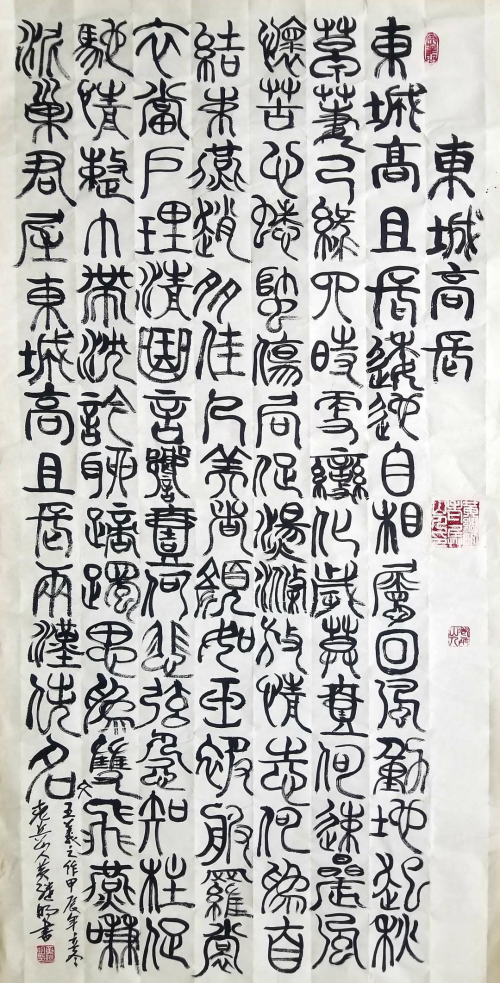 東城高長
東城高且長逶迤自相屬回風動地起秋
草萋已綠四時更變化歲暮壹何速晨風
懷苦心蟋蟀傷局促蕩滌放情志何為自
結束燕趙多佳人美者顏如玉被服羅裳
衣當戶理清曲音響壹何悲弦急知柱促
馳情整巾帶沈吟聊躑躅思為雙飛燕嗛
泥巢君屋東城高且長兩漢佚名
王羲之作甲辰年
山人黃書